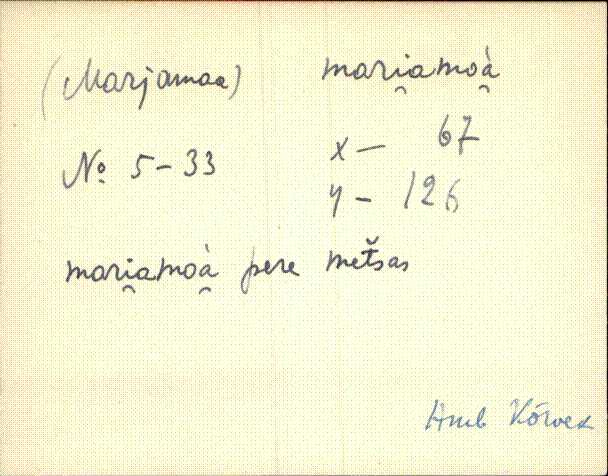 (Marjamaa) mari̯amoà̯
No 5-33 x - 67
y - 126
mari̯amoà̯ pere metšas
Amb Kõrvek